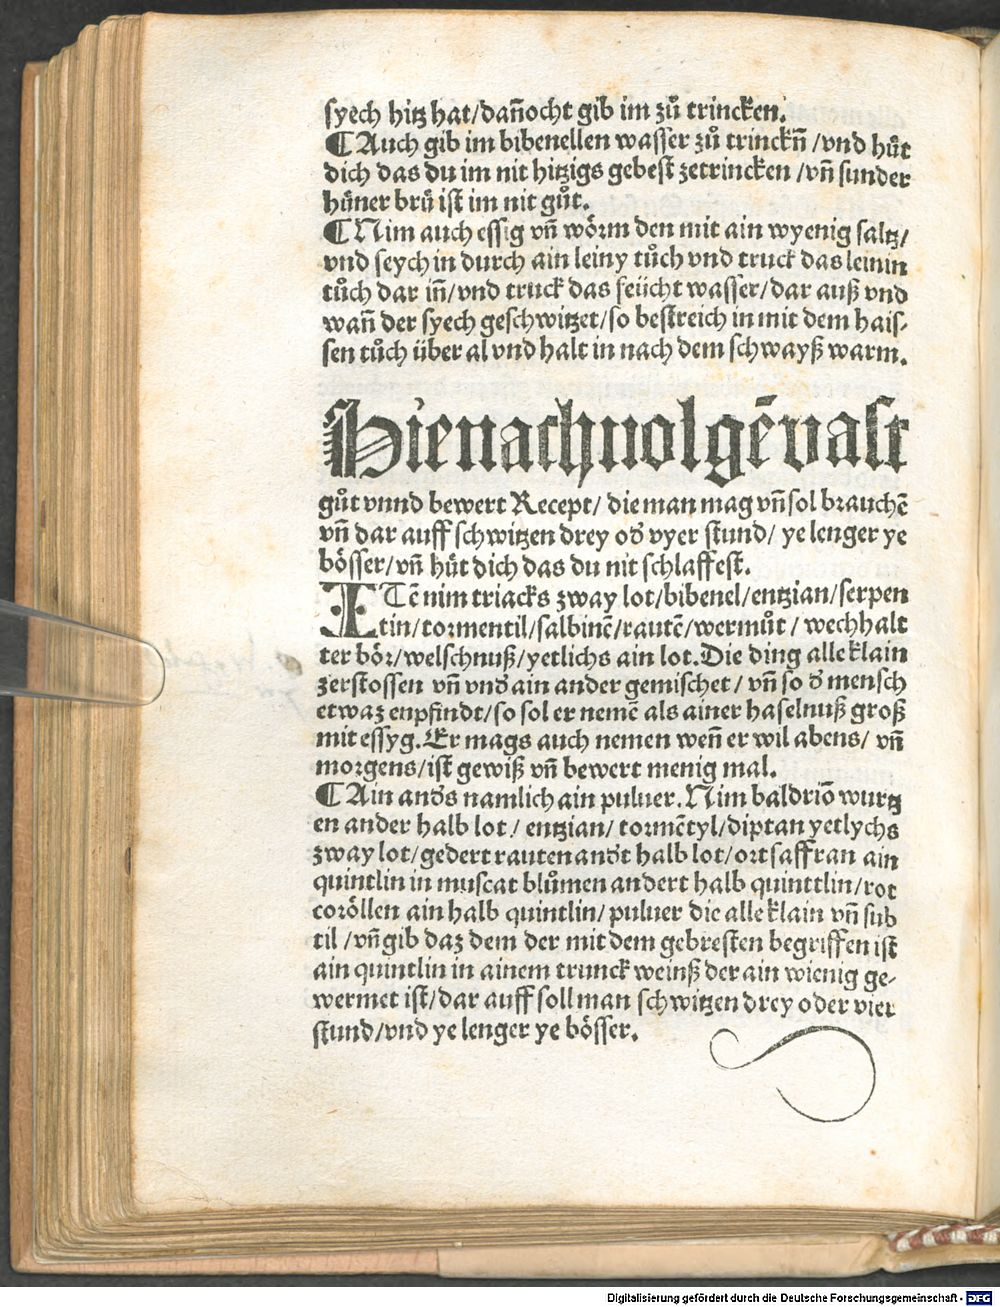 syech hitz hat/dañocht gib im zů trincken.
¶ Auch gib im bibenellen wasser zů trinckñ /vnd hüt
dich das du im nit hitzigs gebest zetrincken /vñ sunder
hüner brü ist im nit gůt.
¶ Nim auch essig vñ wörm den mit ain wyenig saltz/
vnd seych in durch ain leiny tůch vnd truck das leinin
tůch dar iñ/vnd truck das feücht wasser/dar auß vnd
wañ der syech geschwitzet/so bestreich in mit dem hais-
sen tůch über al vnd halt in nach dem schwayß warm.
Hie nach uolgē vast
gůt vnnd bewert Recept/ die man mag vñ sol brauchē
vñ dar auff schwitzen drey od̕ vyer stund/ ye lenger ye
bösser/vñ hüt dich das du nit schlaffest.
ITē nim triacks zway lot/bibenel/entzian/serpen
tin/tormentil/salbinē/rautē/wermůt/ wechhalt
ter bör/welschnuß/yetlichs ain lot. Die ding alle klain
zerstossen vñ vnd̕ ain ander gemischet/ vñ so d̕ mensch
etwaz enpfindt/so sol er nemē als ainer haselnuß groß
mit essyg. Er mags auch nemen weñ er wil abens/ vñ
morgens/ist gewiß vñ bewert menig mal.
¶ Ain and̕s namlich ain puluer. Nim baldriō wurtz
en ander halb lot/ entzian/ tormētyl/diptan yetlychs
zway lot/gedert rauten and̕t halb lot/ort saffran ain
quintlin in muscat blůmen andert halb quinttlin/rot
coröllen ain halb quintlin/ puluer die alle klain vñ sub
til /vñ gib daz dem der mit dem gebresten begriffen ist
ain quintlin in ainem trunck weinß der ain wienig ge-
wermet ist/dar auff soll man schwitzen drey oder vier
stund/vnd ye lenger ye bösser.
Digitalisierung gefördert durch die Deutsche Forschungsgemeinschaft - DFG